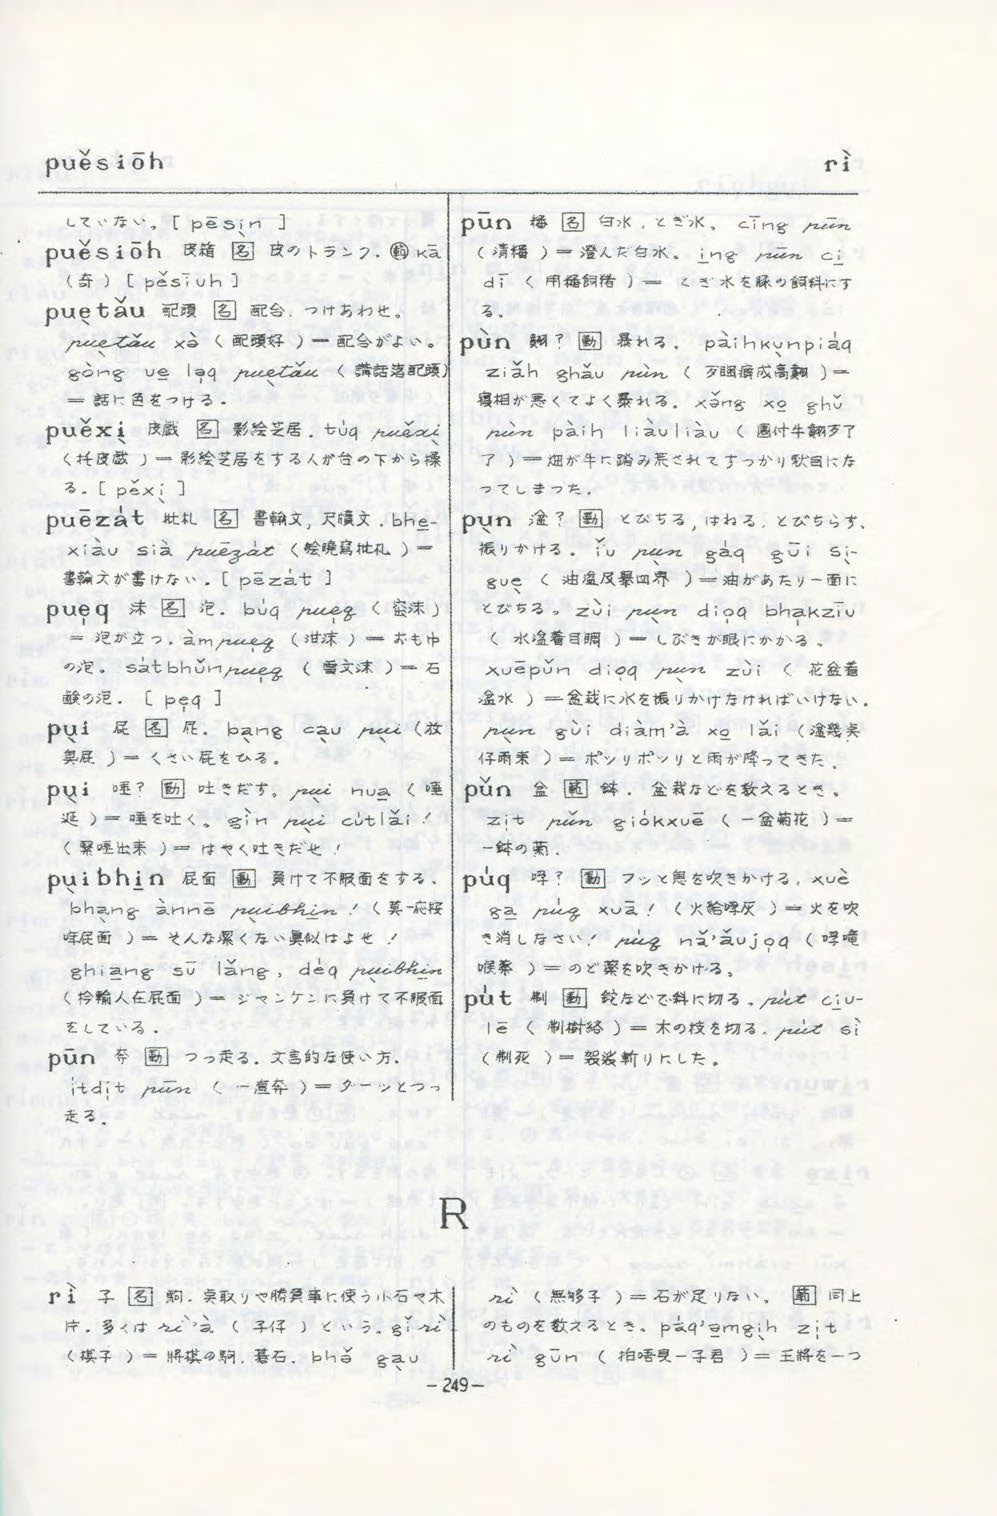 puěsiōh
rì
していない。[ pēsịn ]
puěsiōh 皮箱 名 皮のトランク. 範 kā
(奇) [ pěsīuh ]
puẹtǎu 配頭 名 配合. つけあわせ。
puẹtǎu xà ( 配頭好 ) = 配合がよい。
gòng uẹ lạq puẹtǎu ( 講話落配頭)
= 話に色をつける。
puěxị 皮戲 名 影絵芝居. túq puěxị
(托皮戲 ) = 影絵芝居をする人が台の下から操
る. [ pěxị ]
puēzát 批札 名 書翰文, 尺牘文. bhẹ-
xiàu sià puēzát ( 䆀曉寫批札 ) =
書翰文が書けない. [ pēzát ]
puẹq 沫 名 泡. búq puẹq ( 沫)
= 泡が立つ. àm puẹq ( 泔沫 ) = おもゆ
の泡。sátbhǔn puẹq ( 雪文沫 ) = 石
鹸の泡. [ pẹq ]
pụi 屁 名 屁. bạng càu pụi (放
臭屁 ) = くさい屁をひる。
pụi 唾? 動 吐きだす。pụi nuạ ( 唾
涎 ) = 唾を吐く。gìn pụi cútlǎi !
( 緊唾出来 ) = はやく吐きだせ !
pụibhịn 屁面 動 負けて不服面をする.
bhạng ànnē pụibhịn ! ( 莫
屁面 ) = そんな潔くない真似はよせ !
ghiạng sū lǎng, déq pụibhịn
( 輸人在屁面 ) = ジャンケンに負けて不服面
をしている.
pūn 奔 動 つっ走る. 文言的な使い方.
ịtdịt pūn ( 一直奔 ) = ターンとつっ
走る.
pūn 潘 名 白水, とぎ水。cīng pūn
( 清潘 ) = 澄んだ白水。ịng pūn cị
dī ( 用潘飼猪 ) = とぎ水を豚の飼料にす
る。
pùn 翸? 動 暴れる. pàihkụnpiáq
ziǎh ghǎu pùn ( 歹睏癖成高翸 ) =
寝相が悪くてよく暴れる。xǒng xọ ghǔ
pùn pàih liàuliàu ( 園付牛翸歹了
了 ) = 畑が牛に踏み荒されてすっかり駄目にな
ってしまった.
pụn 湓? 動 とびちる, はねる, とびちらす,
振りかける. ǐu pụn gáq gūi sị-
guẹ ( 油湓及舉四界 ) = 油があたり一面に
とびちる。zùi pụn dịọq bhạkzīu
( 水湓着目睭 ) = しぶきが眼にかかる。
xuēpǔn dịọq pụn zùi ( 花盆着
湓水 ) = 盆栽に水を振りかけなければいけない.
pụn gùi diàm'à xọ lǎi ( 湓幾
仔雨来 ) = ポツリポツリと雨が降ってきた.
pǔn 盆 範 鉢. 盆栽などを数えるとき。
zịt pǔn giókxuē ( 一盆菊花 ) =
一鉢の菊.
púq 哱? 動 フッと息を吹きかける. xuè
gạ púq xuā ! ( 火給哱灰 ) = 火を吹
き消しなさい! púq nǎ'ǎujọq ( 哱嚨
喉薬 ) = のど薬を吹きかける。
pút 刜 動 鉈などで斜に切る. pút cịu-
lē ( 刜樹絡 ) = 木の枝を切る. pút sì
( 刜死 ) = 袈裟斬りにした。
R
rì 子 名 駒. 実取りや勝負事に使う小石や木
片. 多くは rì'à ( 子仔 ) という。gǐ rì
(棋子 ) = 將棋の駒. 碁石. bhǒ gạu
rì ( 無够子 ) = 石が足りない。範 同上
のものを数えるとき。páq'ạmgịh zịt
rì gūn ( 拍唔見一子君 ) = 王將を一つ
-249-